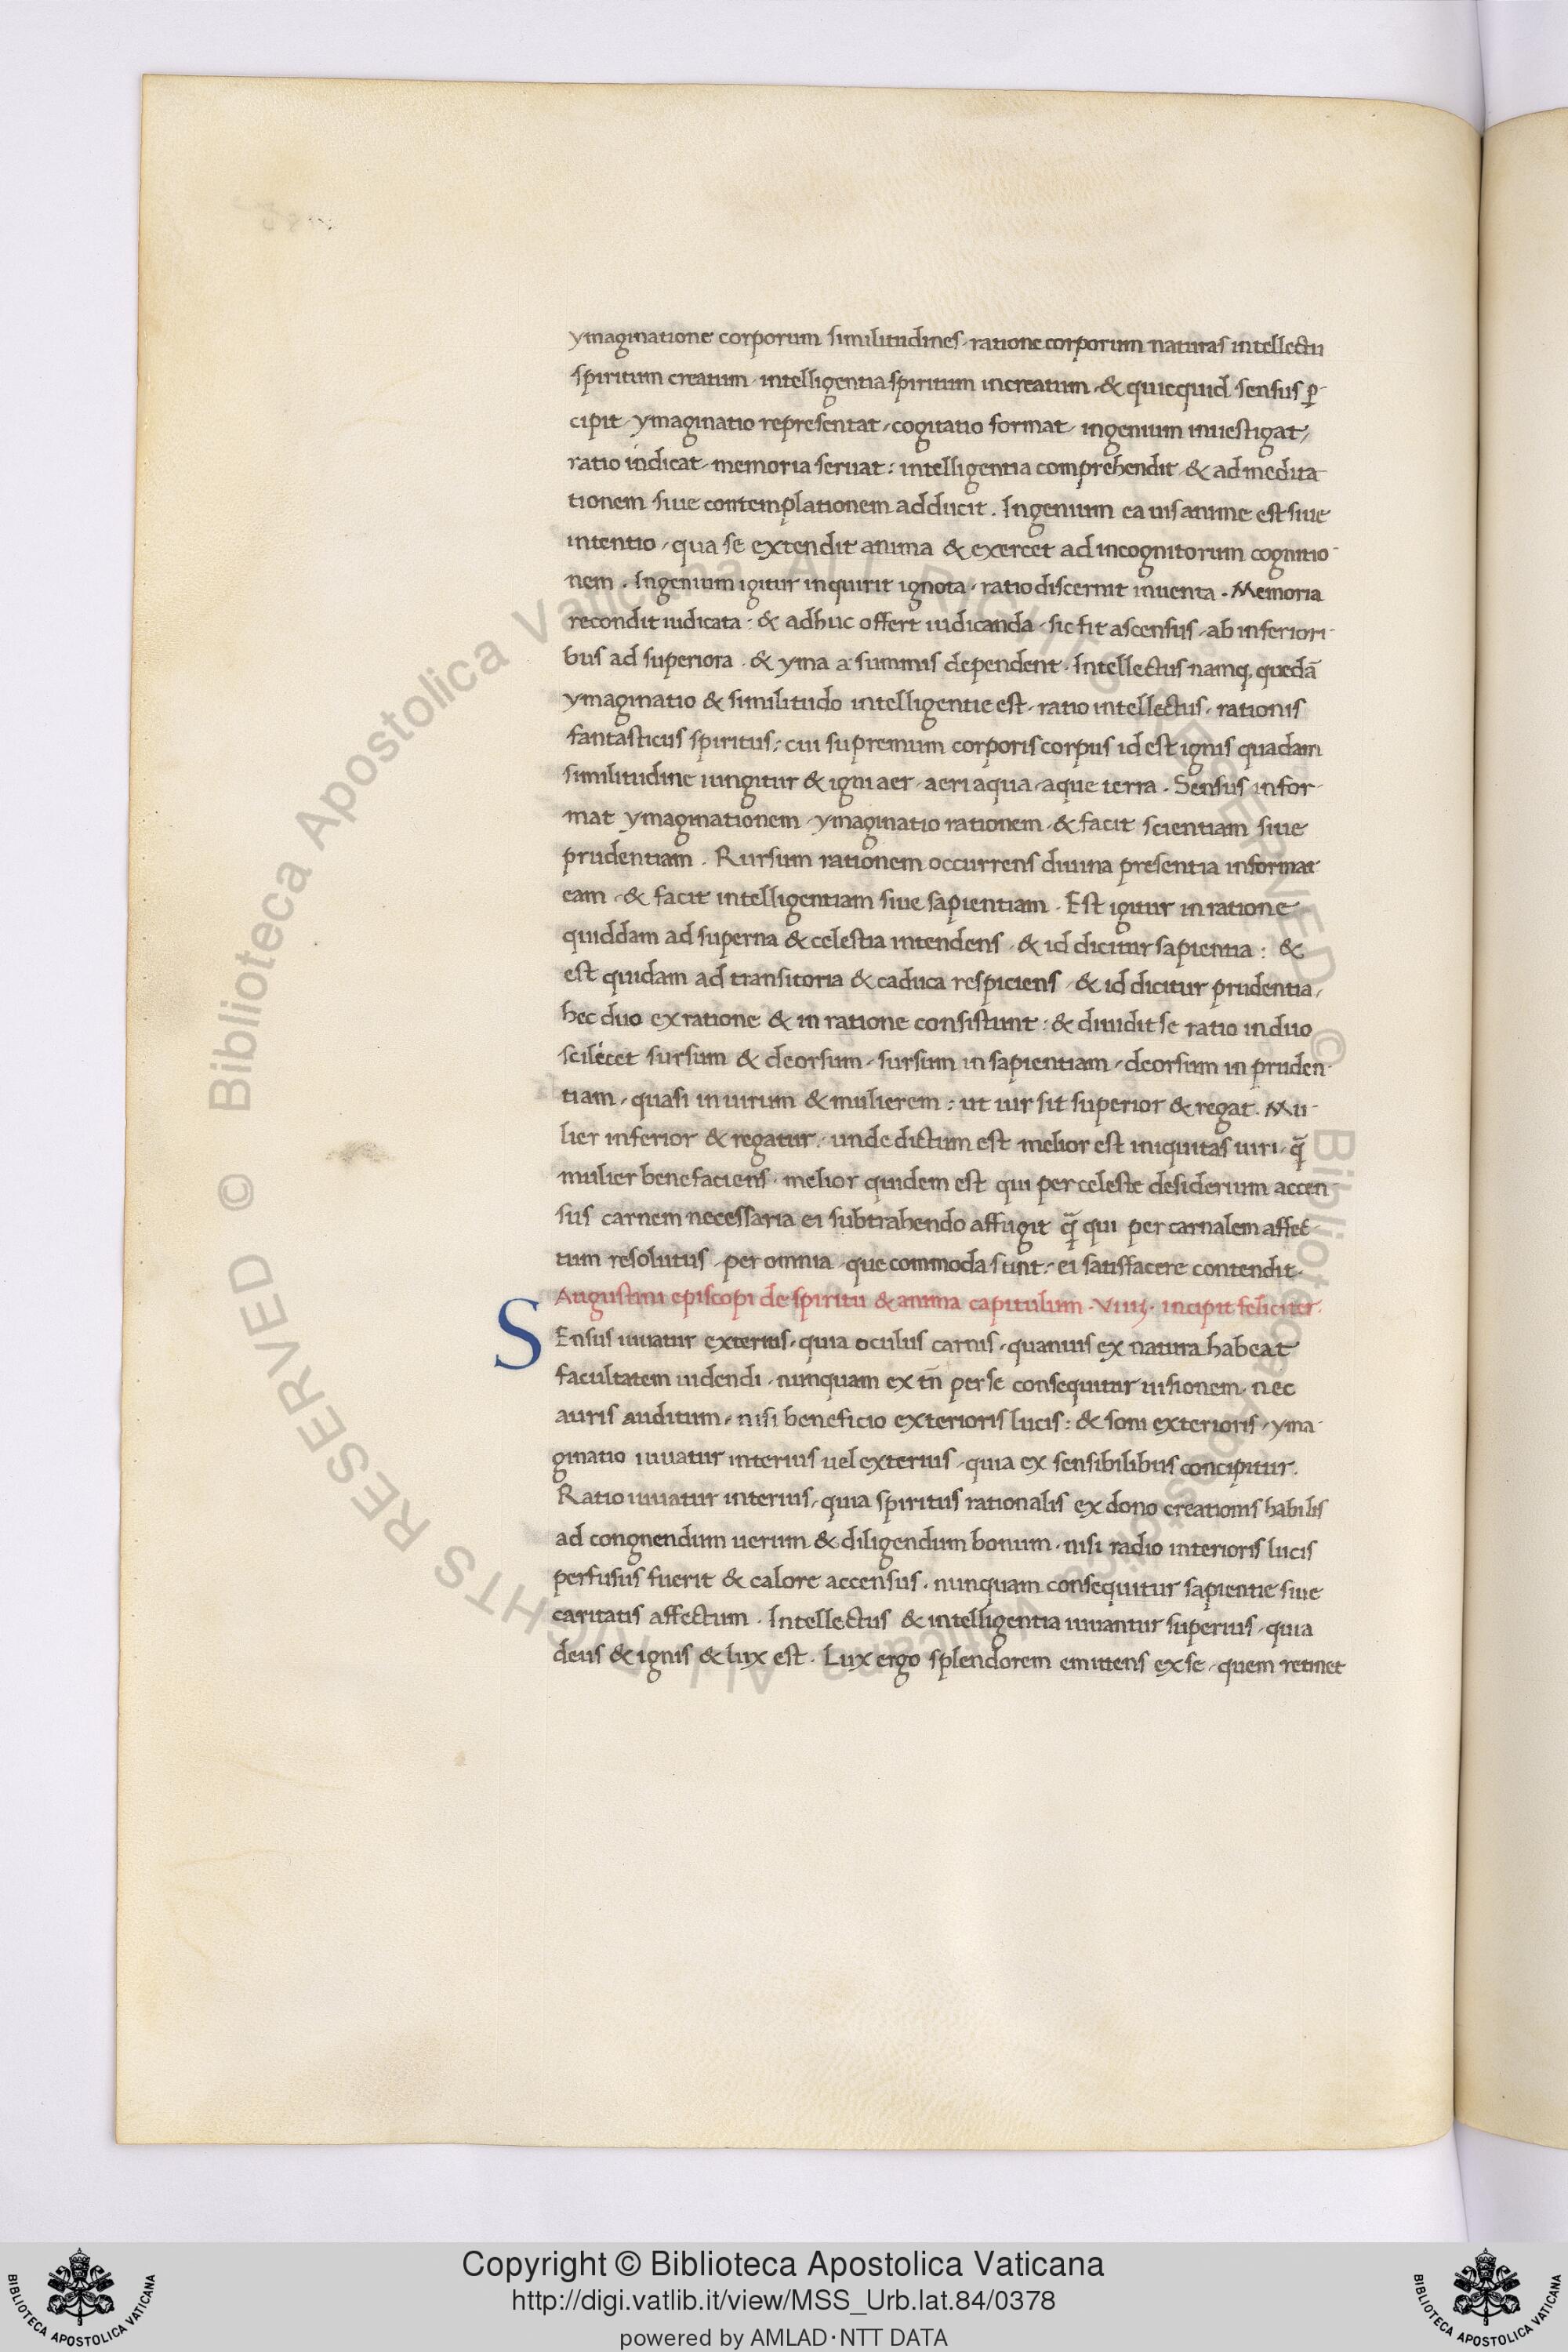 ymaginatione corporum similitudines, ratione corporum naturas intellectu
spiritum creatum, intelligentia spiritum increatum, & quicquid sensus p̱
cipit, ymaginatio representat, cogitatio format, ingenium inuestigat,
ratio indicat, memoria seruat: intelligentia comprehendit, & ad medita
tionem siue contemplationem adducit. Ingenium ea uis anime est siue
intentio, qua se extendit anima & exercet ad incognitorum cognitio-
nem. Ingenium igitur inquirit ignota, ratio discernit inuenta. Memoria
recondit iudicata: & adhuc offert iudicanda, sic fit ascensus, ab inferiori-
bus ad superiora. & yma a summis dependent. Intellectus namq, quedā
ymaginatio & similitudo intelligentie est, ratio intellectus, rationis
fantasticus spiritus: cui supremum corporis corpus id est ignis quadam
similitudine iungitur & igni aer, aeri aqua, aque terra. Sensus infor-
mat ymaginationem, ymaginatio rationem, & facit scientiam siue
prudentiam. Rursum rationem occurrens diuina presentia informat
eam, & facit intelligentiam siue sapientiam. Est igitur in ratione
quiddam ad superna & celestia intendens, & id dicitur sapientia: &
est quidam ad transitoria & caduca respiciens, & id dicitur prudentia,
hec duo ex ratione & in ratione consistunt: & diuidit se ratio in duo
scilécet sursum & deorsum, sursum in sapientiam, deorsum in pruden-
tiam, quasi in uirum & mulierem: ut uir sit superior & regat. Mu-
lier inferior & regatur, unde dictum est melior est iniquitas uiri, q̄
mulier benefaciens, melior quidem est qui per celeste desiderium accen-
sus carnem necessaria ei subtrahendo affugit q̄ qui per carnalem affec-
tum resolutus, per omnia, que commoda sunt, ei satisfacere contendit.
Augustini episcopi de spiritu & anima capitulum. viiij. incipit feliciter.
SEnsus iuuatur exterius, quia oculus carnis, quamuis ex natura habeat
facultatem uidendi, nunquam ex tn̄ per se consequitur uisionem, nec
auris auditum, nisi beneficio exterioris lucis: & soni exterioris, yma-
ginatio iuuatur interius uel exterius, quia ex sensibilibus concipitur.
Ratio iuuatur interius, quia spiritus rationalis ex dono creationis habilis
ad congnendum uerum & diligendum bonum, nisi radio interioris lucis
perfusus fuerit & calore accensus, nunquam consequitur sapientie siue
caritatis affectum. Intellectus & intelligentia iuuantur superius, quia
deus & ignis & lux est. Lux ergo splendorem emittens ex se, quem retinet
© Biblioteca Apostolica Vaticana ALL RIGHTS RESERVED © Biblioteca Apostolica Vaticana ALL RIGHTS RESERVED
Copyright © Biblioteca Apostolica Vaticana
http://digi.vatlib.it/view/MSS_Urb.lat.84/0378
powered by AMLAD·NTT DATA
BIBLIOTECA APOSTOLICA VATICANA
BIBLIOTECA APOSTOLICA VATICANA